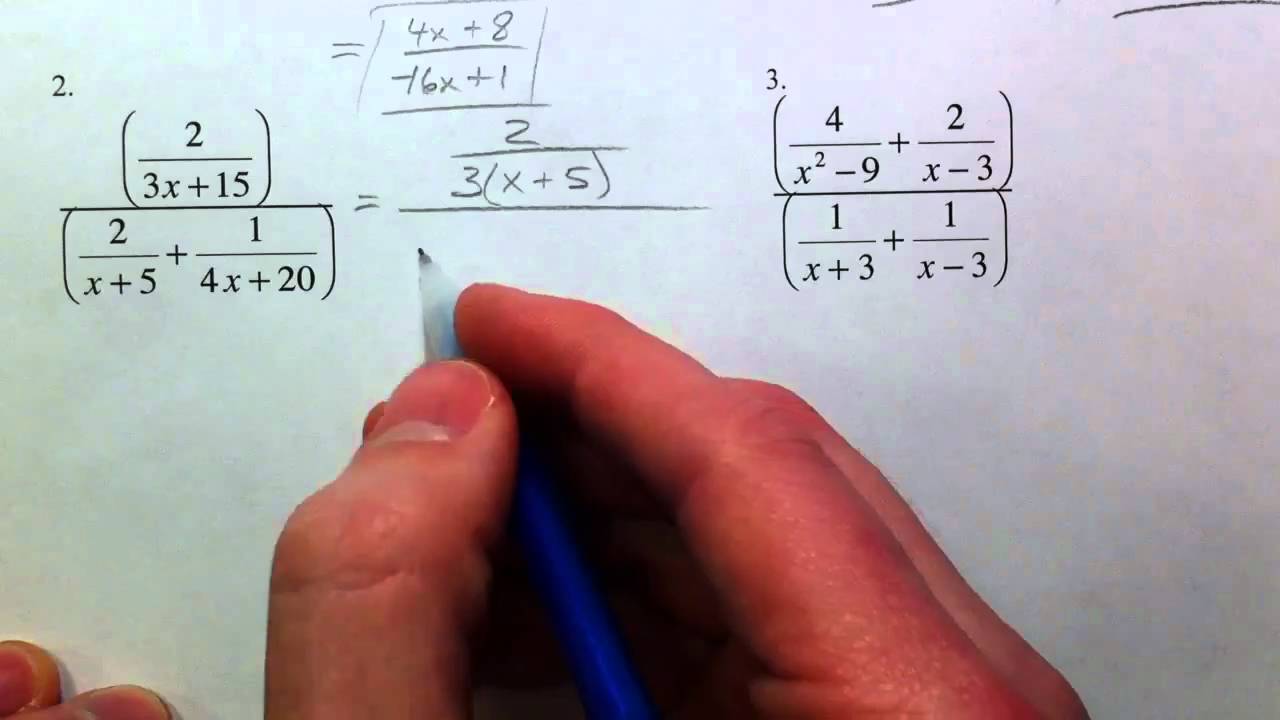 = 4x + 8
-16x + 1
2.
(2 / 3x + 15)
(2 / x + 5 + 1 / 4x + 20)
= 2
3(x + 5)
3.
(4 / x² − 9 + 2 / x − 3)
(1 / x + 3 + 1 / x − 3)